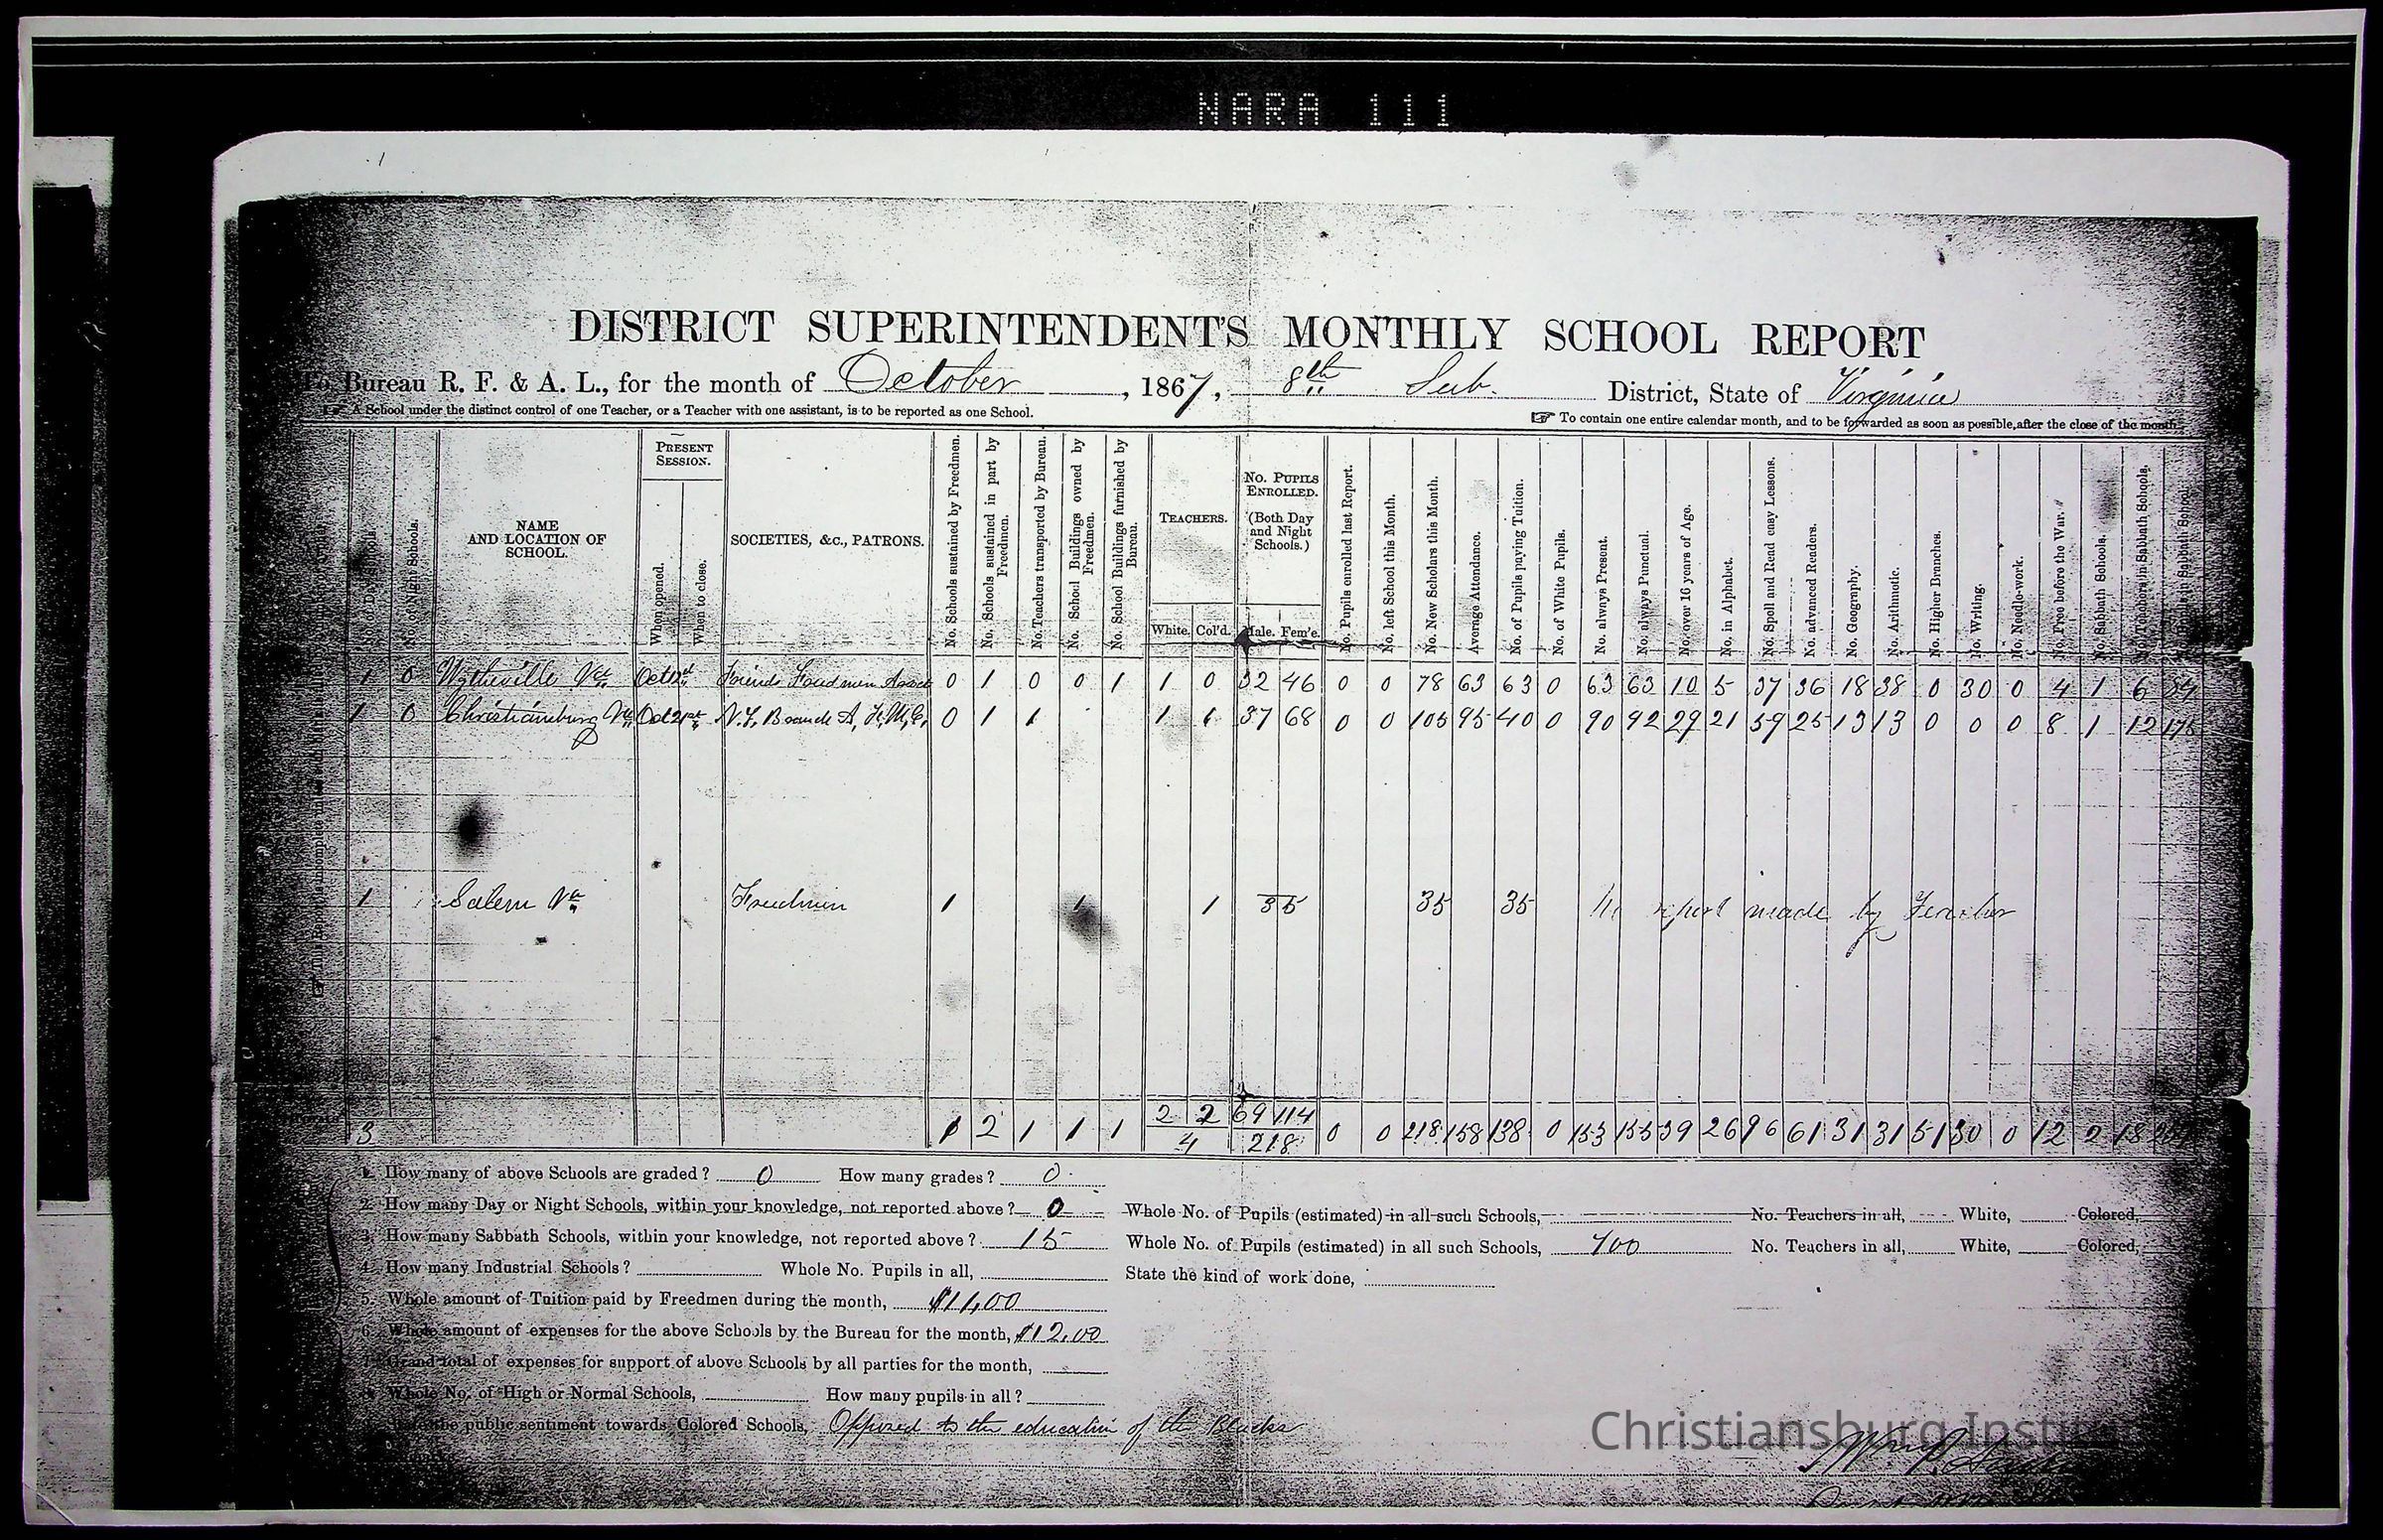 NARA 111
DISTRICT SUPERINTENDENT'S MONTHLY SCHOOL REPORT
To Bureau R. F. & A. L., for the month of October, 1867, 8th Sub. District, State of Virginia
☞ A School under the distinct control of one Teacher, or a Teacher with one assistant, is to be reported as one School.
☞ To contain one entire calendar month, and to be forwarded as soon as possible, after the close of the month.
No. of Night Schools.
NAME AND LOCATION OF SCHOOL.
PRESENT SESSION.
When opened.
When to close.
SOCIETIES, &c., PATRONS.
No. Schools sustained by Freedmen.
No. Schools sustained in part by Freedmen.
No. Teachers transported by Bureau.
No. School Buildings owned by Freedmen.
No. School Buildings furnished by Bureau.
TEACHERS.
White. Col'd.
No. PUPILS ENROLLED.
(Both Day and Night Schools.)
Male. Fem'e.
No. Pupils enrolled last Report.
No. left School this Month.
No. New Scholars this Month.
Average Attendance.
No. of Pupils paying Tuition.
No. of White Pupils.
No. always Present.
No. always Punctual.
No. over 16 years of Age.
No. in Alphabet.
No. Spell and Read easy Lessons.
No. advanced Readers.
No. Geography.
No. Arithmetic.
No. Higher Branches.
No. Writing.
No. Needle-work.
No. Free before the War.
No. Sabbath Schools.
No. Teachers in Sabbath Schools.
1 0 Wytheville Va Oct Friends Freedmen Assoc 0 1 0 0 1 1 0 32 46 0 0 78 63 63 0 63 63 10 5 37 36 18 38 0 30 0 4 1 6
1 0 Christiansburg Va Oct 21st N.Y. Branch A, F, U, C, 0 1 1 1 1 37 68 0 0 105 95 40 0 90 92 29 21 59 25 13 13 0 0 0 8 1 12
1 Salem Va Freedmen 1 1 1 35 35 35 No report made by Teacher
3 1 2 1 1 1 2 2 69 114 0 0 218 158 138 0 153 155 39 26 96 61 31 51 30 0 12 2 18
4 218
1. How many of above Schools are graded? 0 How many grades? 0
2. How many Day or Night Schools, within your knowledge, not reported above? 0 Whole No. of Pupils (estimated) in all such Schools, No. Teachers in all, White, Colored,
3. How many Sabbath Schools, within your knowledge, not reported above? 15 Whole No. of Pupils (estimated) in all such Schools, 700 No. Teachers in all, White, Colored,
4. How many Industrial Schools? Whole No. Pupils in all, State the kind of work done,
5. Whole amount of Tuition paid by Freedmen during the month, $11,00
6. Whole amount of expenses for the above Schools by the Bureau for the month, $12,00
7. Grand total of expenses for support of above Schools by all parties for the month,
Whole No. of High or Normal Schools, How many pupils in all?
the public sentiment towards Colored Schools, Opposed to the education of the Blacks
Christiansburg